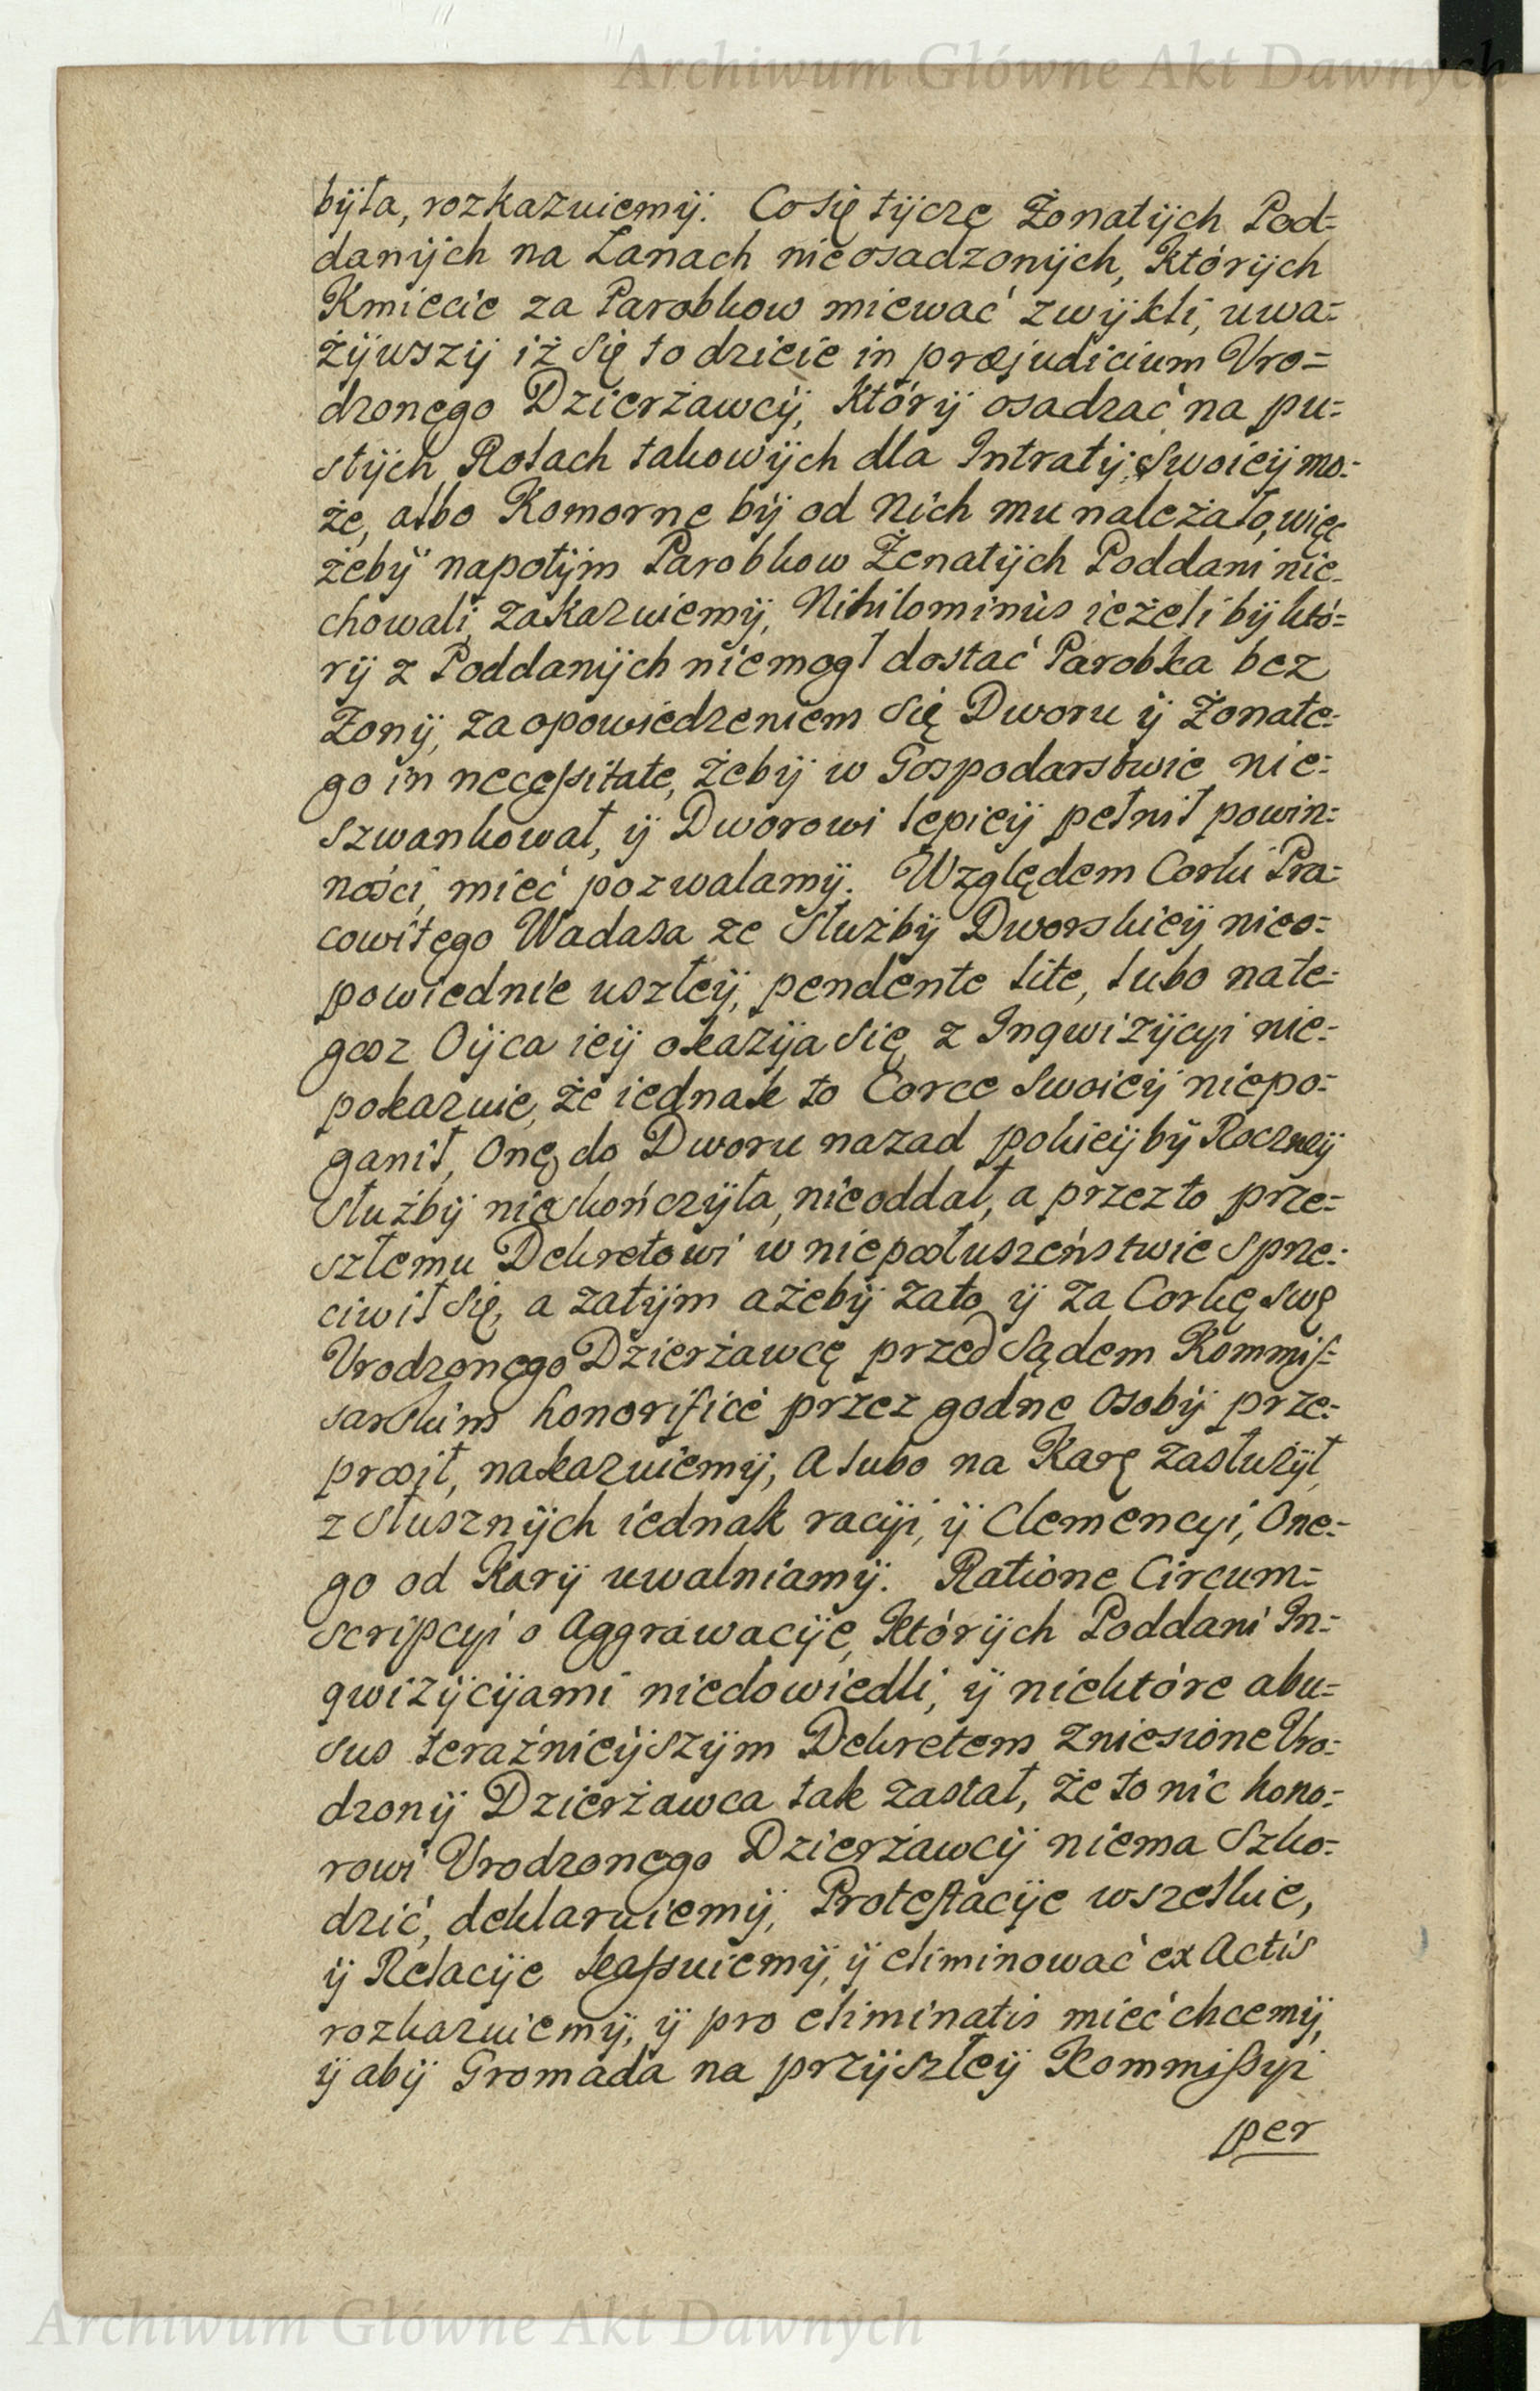 Archiwum Główne Akt Dawnych
była, rozkazuiemÿ. Co się tÿczę Żonatÿch Pod=
danÿch na Łanach nieosadzonÿch, Którÿch
Kmiecie za Parobkow miewać zwÿkli, uwa=
żÿwszÿ iż się to dzieie in præjudicium Vro=
dzonęgo Dzierżawcÿ, Którÿ osadzać na pu=
stÿch Rolach takowÿch dla Intratÿ swoieÿ mo=
że, albo Komorne bÿ od Nich mu należało, więc
żebÿ napotÿm Parobkow Żenatÿch Poddani nie
chowali, zakazuiemÿ, Nihilominùs ieżeli bÿ któ=
rÿ z Poddanÿch niemogł dostać Parobka bez
Żonÿ, za opowiedzeniem się Dworu ÿ Żonate=
go in necęssitate, żebÿ w Gospodarstwie nie=
szwankował, ÿ Dworowi lepieÿ pełnił powin=
ności, mieć pozwalamÿ. Względem Corki Pra=
cowitęgo Wadasa ze Służbÿ Dworskieÿ nieo=
powiednie uszłeÿ, pendente lite, lubo nate=
goż Oÿca ieÿ okazÿa się z Inqwizÿcyi nie=
pokazuie, że iednak to Corce swoieÿ niepo=
ganił, Onę do Dworu nazad pokieÿ bÿ Roczneÿ
Służbÿ nieskończÿła, nieoddał, a przez to prze=
szłemu Dekretowi w nieposłuszeństwie sprze=
ciwił się, a zatÿm ażebÿ zato ÿ za Corkę swę
Vrodzonęgo Dzierżawcę przed Sądem Kommis=
sarskim honorificè przez godne Osobÿ prze=
prosił, nakazuiemÿ, A lubo na Karę zasłużÿł,
z słusznÿch iednak racÿi, ÿ Clemencyi, One=
go od Karÿ uwalniamÿ. Ratione Circum=
scripcyi o Aggrawacÿe, Którÿch Poddani In=
qwizÿcÿami niedowiedli, ÿ niektóre abu=
sus teraźnieÿszÿm Dekretem zniesione Vro=
dzonÿ Dzierżawca tak zastał, że to nic hono=
rowi Vrodzonęgo Dzierżawcÿ niema szko=
dzić, deklaruiemÿ, Protestacÿe wszelkie,
ÿ Relacÿe kassuiemÿ, ÿ eliminować ex Actis
rozkazuiemÿ, ÿ pro eliminatis mieć chcemÿ,
ÿ abÿ Gromada na przÿszłeÿ Kommissyi
per
Archiwum Główne Akt Dawnych